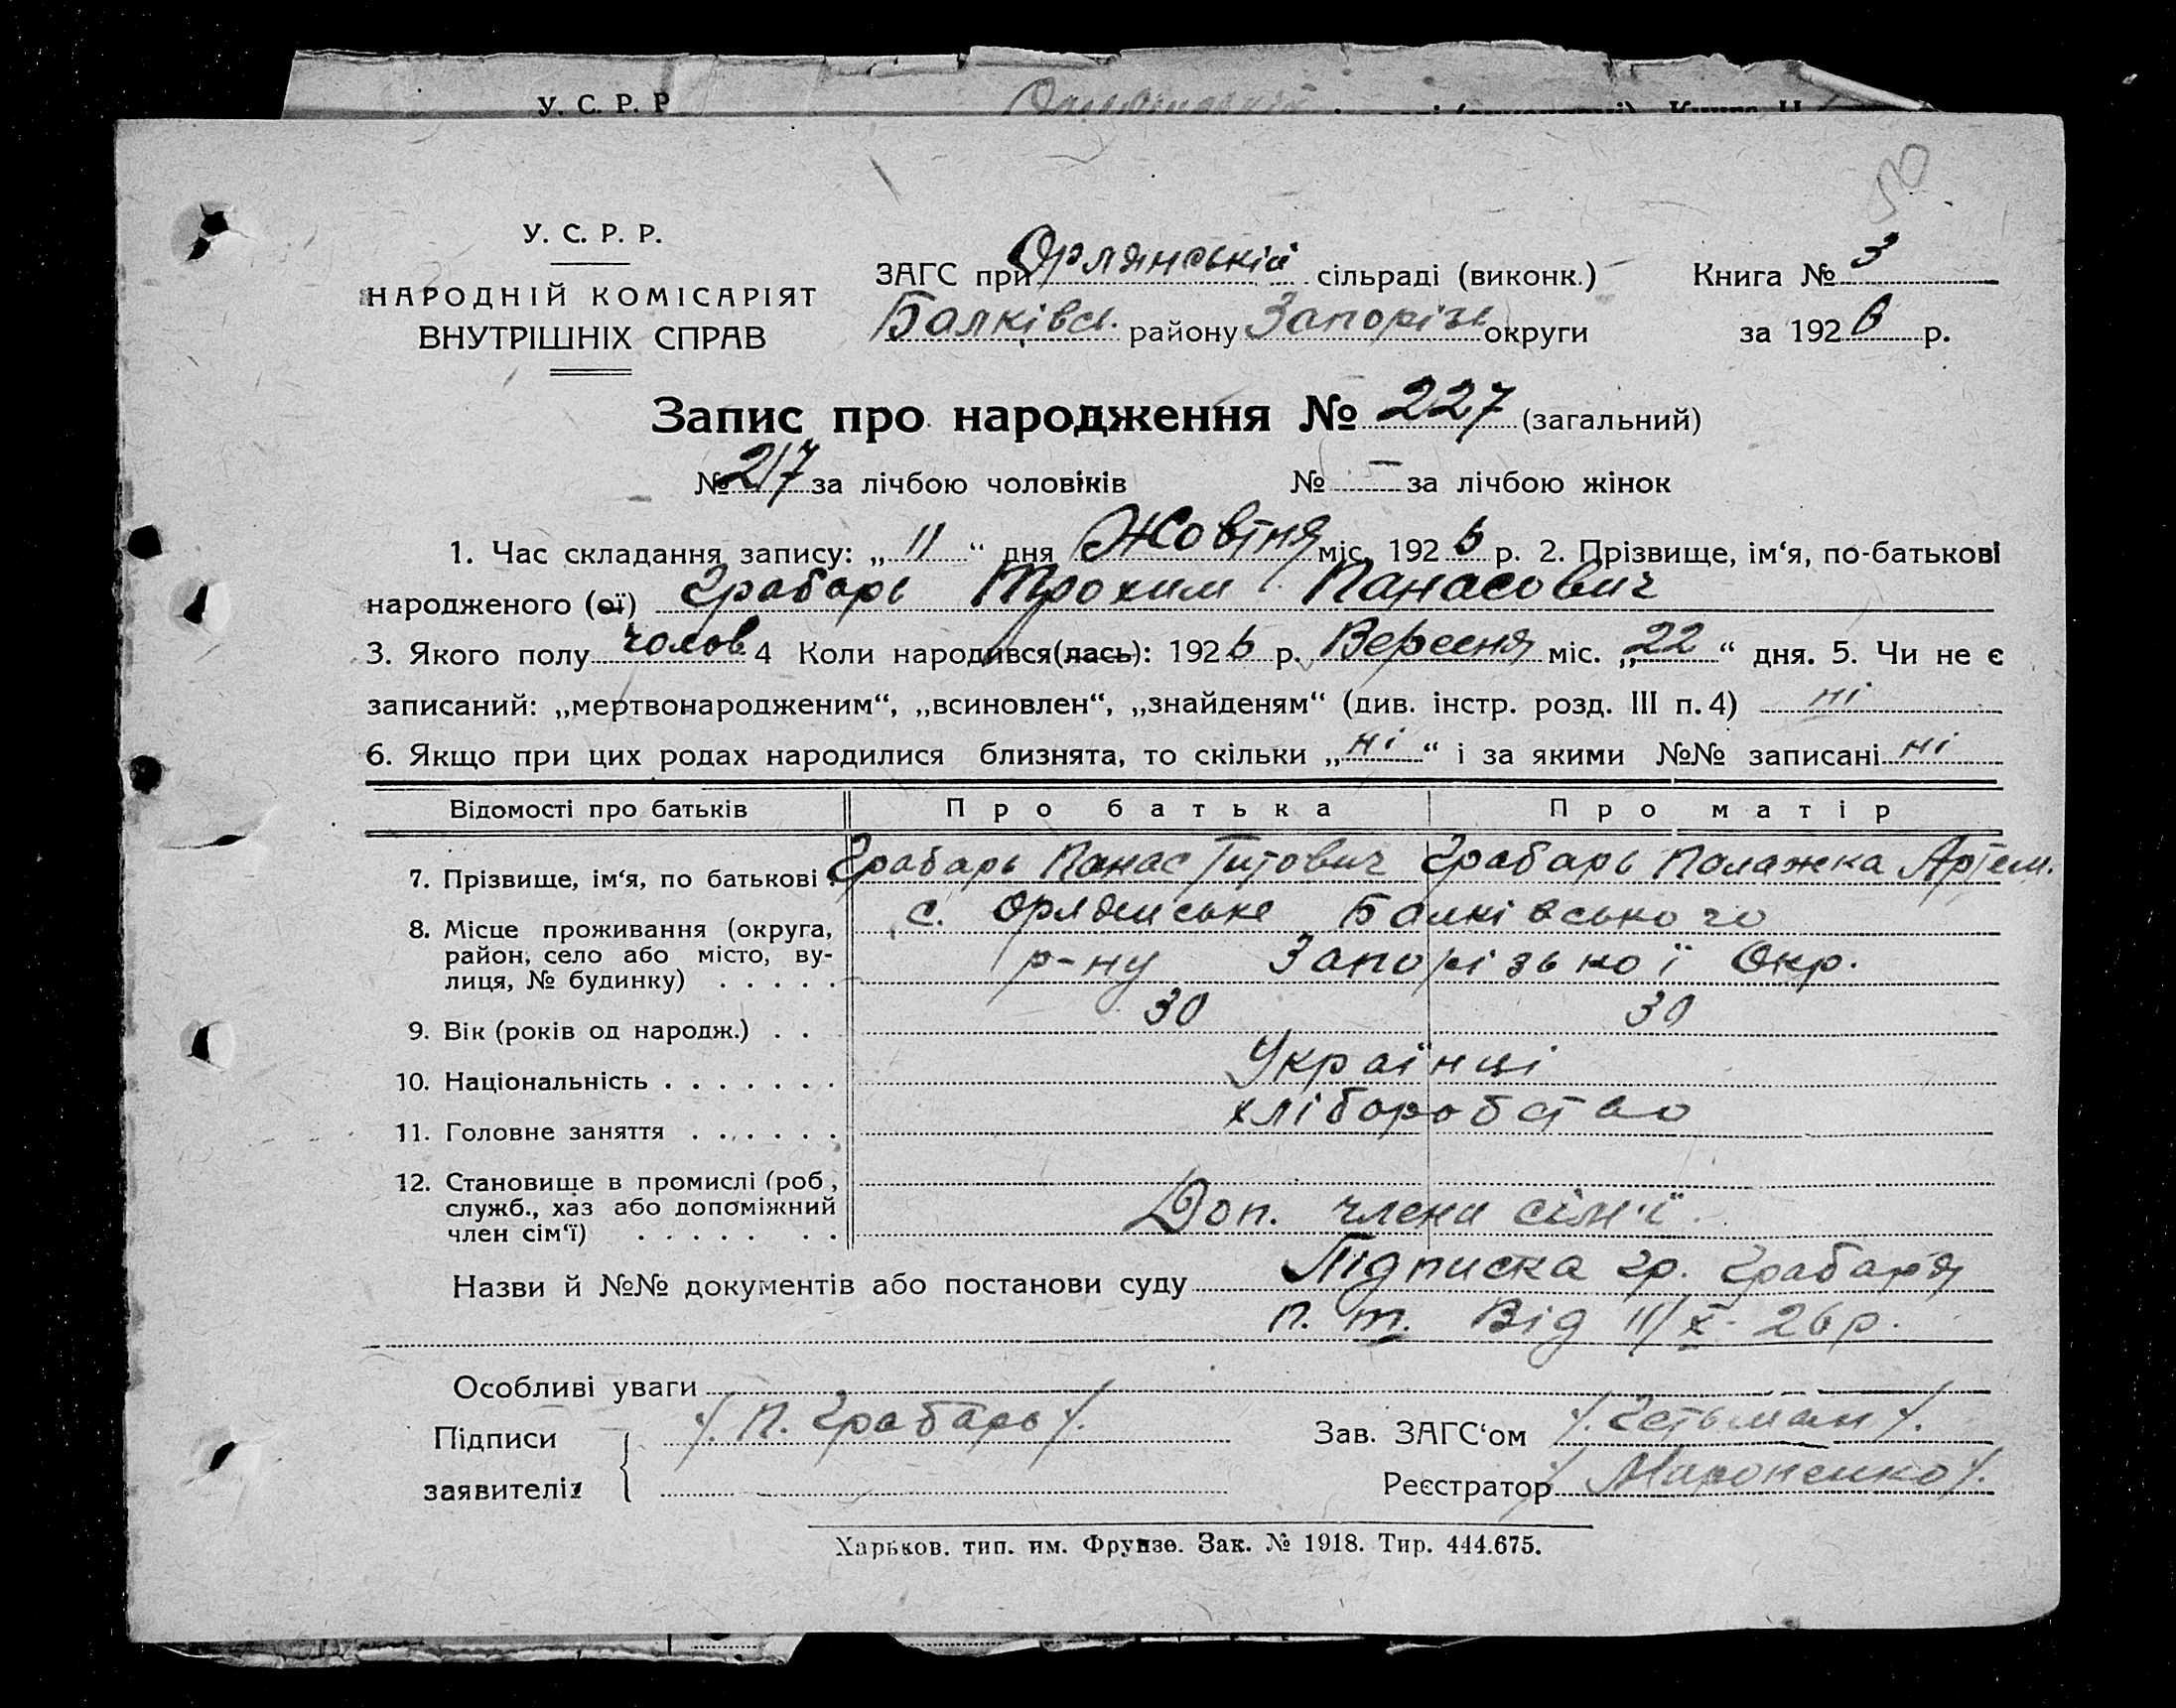 У. С. Р. Р
50
У. С. Р. Р.
НАРОДНІЙ КОМІСАРІЯТ
ВНУТРІШНІХ СПРАВ
ЗАГС при Орлянській сільраді (виконк.) Книга № 3
Балківськ. району Запорізьк округи за 1926 р.
Запис про народження № 227 (загальний)
№ 217 за лічбою чоловіків № — за лічбою жінок
1. Час складання запису: „11“ дня Жовтня міс. 1926 р. 2. Прізвище, ім‘я, по-батькові
народженого (ої) Грабарь Трохим Панасович
3. Якого полу чолов. 4 Коли народився(лась): 1926 р. Вересня міс. „22“ дня. 5. Чи не є
записаний: „мертвонародженим“, „всиновлен“, „знайденям“ (див. інстр. розд. III п. 4) ні
6. Якщо при цих родах народилися близнята, то скільки „ні“ і за якими №№ записані ні
Відомості про батьків Про батька Про матір
7. Прізвище, ім‘я, по батькові . Грабарь Панас Титович Грабарь Палажка Артем.
8. Місце проживання (округа, с. Орлянське Балківського
район, село або місто, ву- р-ну Запорізької Окр.
лиця, № будинку) . . . . .
9. Вік (років од народж.) . . 30 30
10. Національність . . . . . . . Українці
11. Головне заняття . . . . . . хліборобство
12. Становище в промислі (роб.,
служб., хаз або допоміжний Доп. члени сім'ї.
член сім‘ї) . . . . . . .
Назви й №№ документів або постанови суду Підписка гр. Грабаря
П. Т. Від 11/X-26 р.
Особливі уваги
Підписи /. П. Грабарь /. Зав. ЗАГС‘ом /. Гетьман /.
заявителів Реєстратор /. Мироненко /.
Харьков. тип. им. Фрунзе. Зак. № 1918. Тир. 444.675.